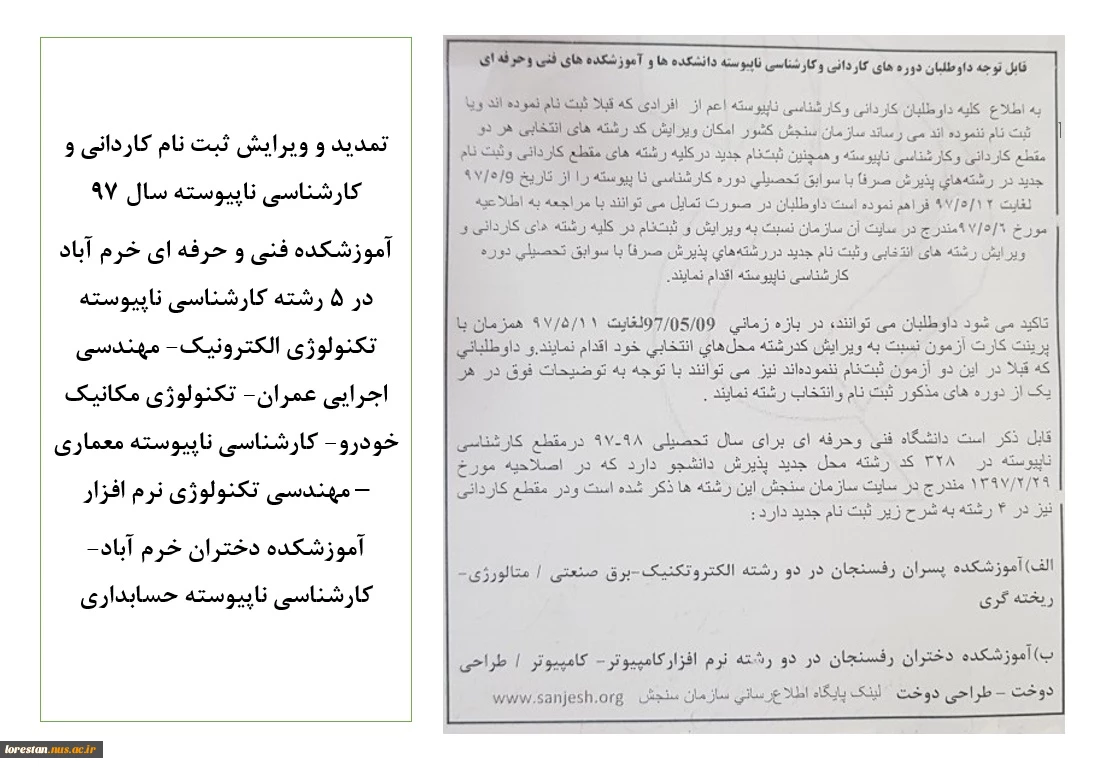 قابل توجه داوطلبان دوره های کاردانی وکارشناسی ناپیوسته دانشکده ها و آموزشکده های فنی وحرفه ای
به اطلاع کلیه داوطلبان کاردانی وکارشناسی ناپیوسته اعم از افرادی که قبلا ثبت نام نموده اند ویا
ثبت نام ننموده اند می رساند سازمان سنجش کشور امکان ویرایش کد رشته های انتخابی هر دو
مقطع کاردانی وکارشناسی ناپیوسته وهمچنین ثبت‌نام جدید درکلیه رشته های مقطع کاردانی وثبت نام
جدید در رشته‌هاي پذیرش صرفاً با سوابق تحصیلي دوره کارشناسی نا پیوسته را از تاریخ ۹۷/۵/9
لغایت ۹۷/۵/۱۲ فراهم نموده است داوطلبان در صورت تمایل می توانند با مراجعه به اطلاعیه
مورخ ۹۷/۵/۶مندرج در سایت آن سازمان نسبت به ویرایش و ثبت‌نام در کلیه رشته های کاردانی و
ویرایش رشته های انتخابی وثبت نام جدید دررشته‌هاي پذیرش صرفاً با سوابق تحصیلي دوره
کارشناسی ناپیوسته اقدام نمایند.
تاکید می شود داوطلبان می توانند، در بازه زماني 97/05/09لغایت ۹۷/۵/۱۱ همزمان با
پرینت کارت آزمون نسبت به ویرایش کدرشته محل‌هاي انتخابي خود اقدام نمایند.و داوطلباني
که قبلا در این دو آزمون ثبت‌نام ننموده‌اند نیز می توانند با توجه به توضیحات فوق در هر
یک از دوره های مذکور ثبت نام وانتخاب رشته نمایند .
قابل ذکر است دانشگاه فنی وحرفه ای برای سال تحصیلی ۹۸-۹۷ درمقطع کارشناسی
ناپیوسته در ۳۲۸ کد رشته محل جدید پذیرش دانشجو دارد که در اصلاحیه مورخ
۱۳۹۷/۲/۲۹ مندرج در سایت سازمان سنجش این رشته ها ذکر شده است ودر مقطع کاردانی
نیز در ۴ رشته به شرح زیر ثبت نام جدید دارد:
الف)آموزشکده پسران رفسنجان در دو رشته الکتروتکنیک-برق صنعتی / متالورژی-
ریخته گری
ب)آموزشکده دختران رفسنجان در دو رشته نرم افزارکامپیوتر- کامپیوتر / طراحی
دوخت - طراحی دوخت لینک پایگاه اطلاع‌رساني سازمان سنجش www.sanjesh.org
تمدید و ویرایش ثبت نام کاردانی و
کارشناسی ناپیوسته سال ۹۷
آموزشکده فنی و حرفه ای خرم آباد
در ۵ رشته کارشناسی ناپیوسته
تکنولوژی الکترونیک- مهندسی
اجرایی عمران- تکنولوژی مکانیک
خودرو- کارشناسی ناپیوسته معماری
– مهندسی تکنولوژی نرم افزار
آموزشکده دختران خرم آباد-
کارشناسی ناپیوسته حسابداری
lorestan.nus.ac.ir